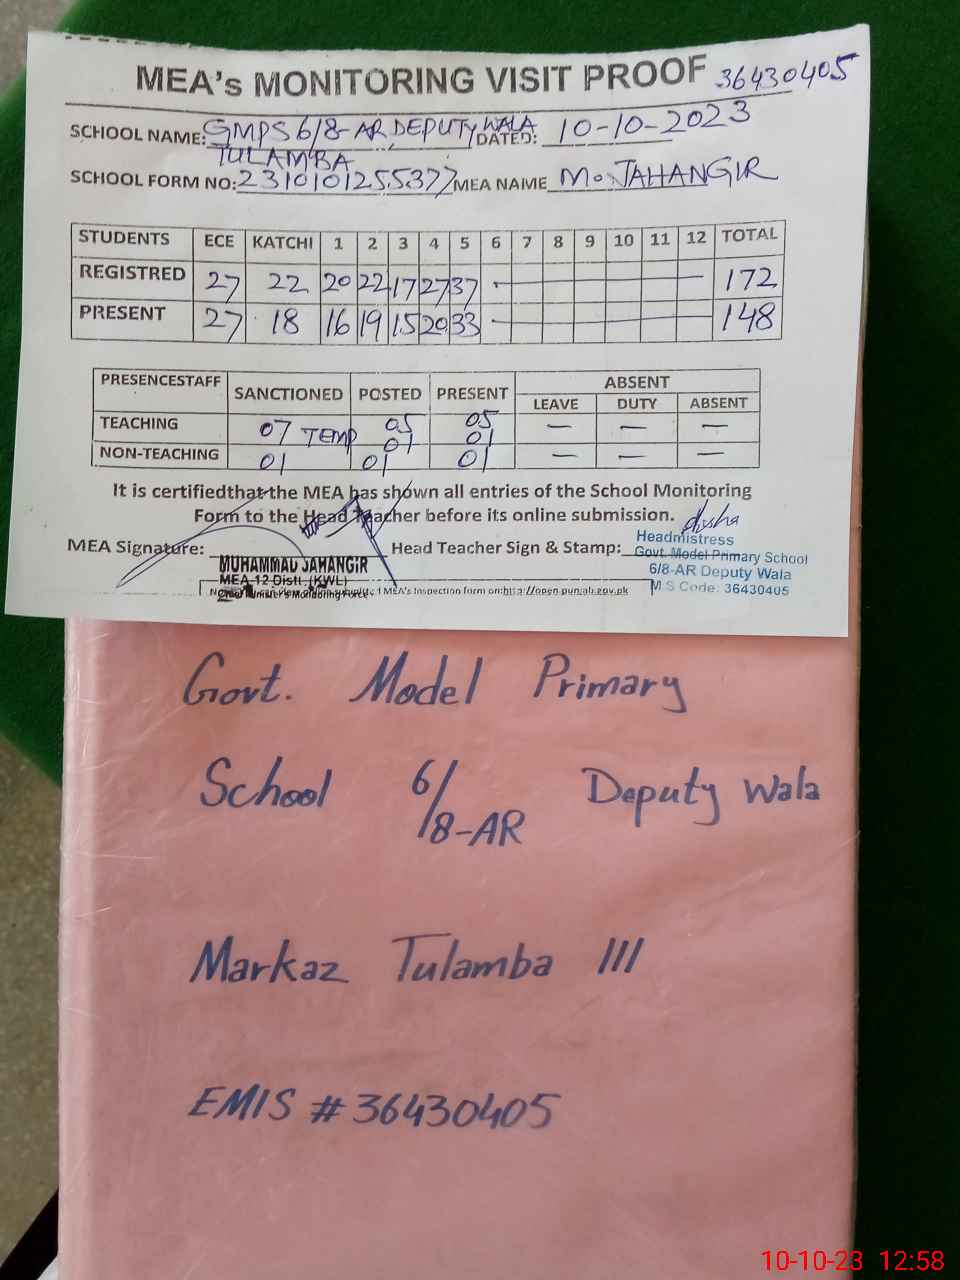 MEA's MONITORING VISIT PROOF 36430405
SCHOOL NAME: GMPS 6/8-AR, DEPUTY WALA DATED: 10-10-2023
TULAMBA
SCHOOL FORM NO: 2310101255377 MEA NAME M. JAHANGIR
STUDENTS ECE KATCHI 1 2 3 4 5 6 7 8 9 10 11 12 TOTAL
REGISTRED 27 22 20 22 17 27 37 172
PRESENT 27 18 16 19 15 20 33 148
PRESENCESTAFF SANCTIONED POSTED PRESENT ABSENT
LEAVE DUTY ABSENT
TEACHING 07 05 05 — — —
TEMP 01 01
NON-TEACHING 01 01 01 — — —
It is certifiedthat the MEA has shown all entries of the School Monitoring
Form to the Head Teacher before its online submission.
MEA Signature: Head Teacher Sign & Stamp:
MUHAMMAD JAHANGIR
MEA-12 Distt. (KWL)
Monitoring Force
Headmistress
Govt. Model Primary School
6/8-AR Deputy Wala
M S Code: 36430405
MEA's Inspection form on:http://open.punjab.gov.pk
Govt. Model Primary
School 6/8-AR Deputy Wala
Markaz Tulamba III
EMIS # 36430405
10-10-23 12:58